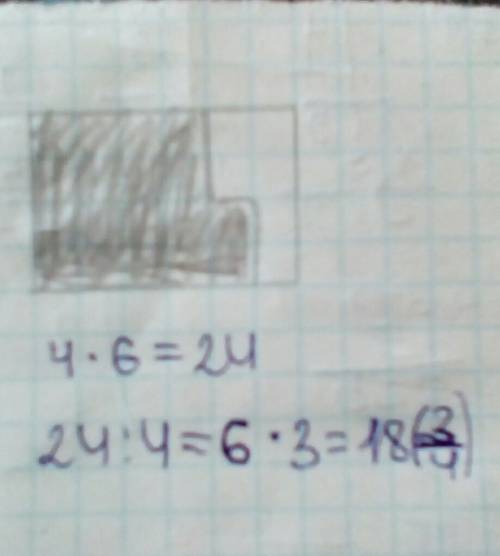 4 · 6 = 24
24 : 4 = 6 · 3 = 18 (3/4)